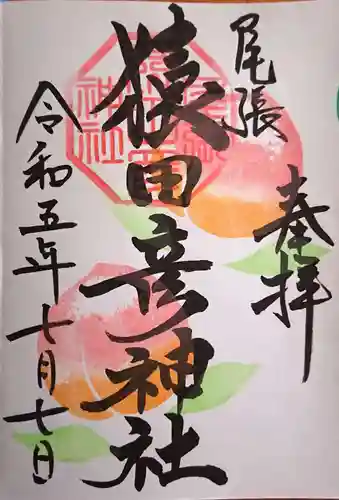 尾張
奉拝
猿田彦神社
令和五年七月七日